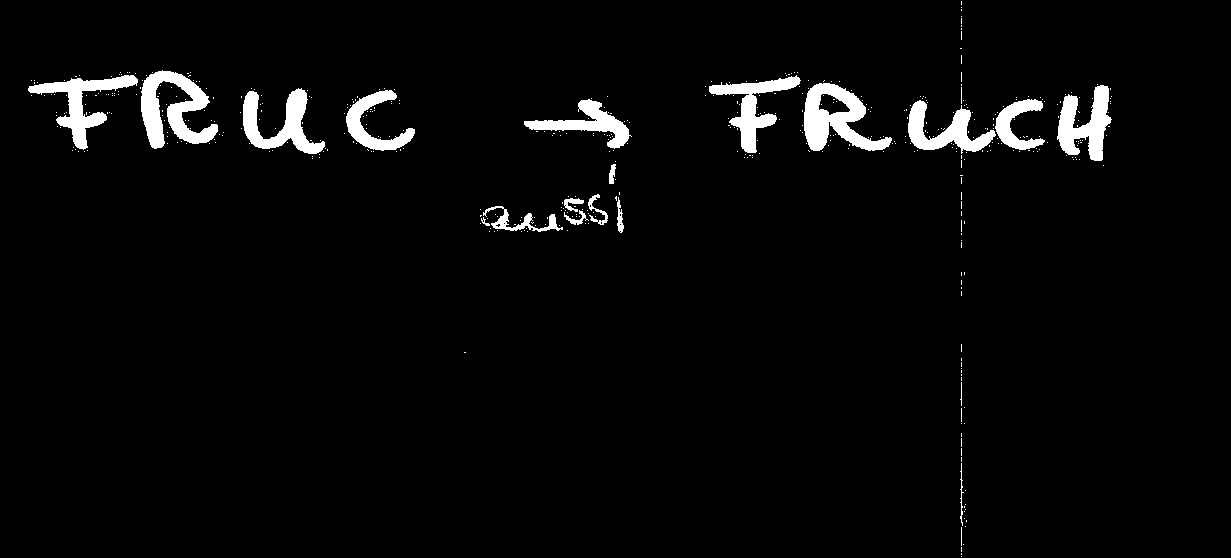 FRUC → FRUCH
aussi